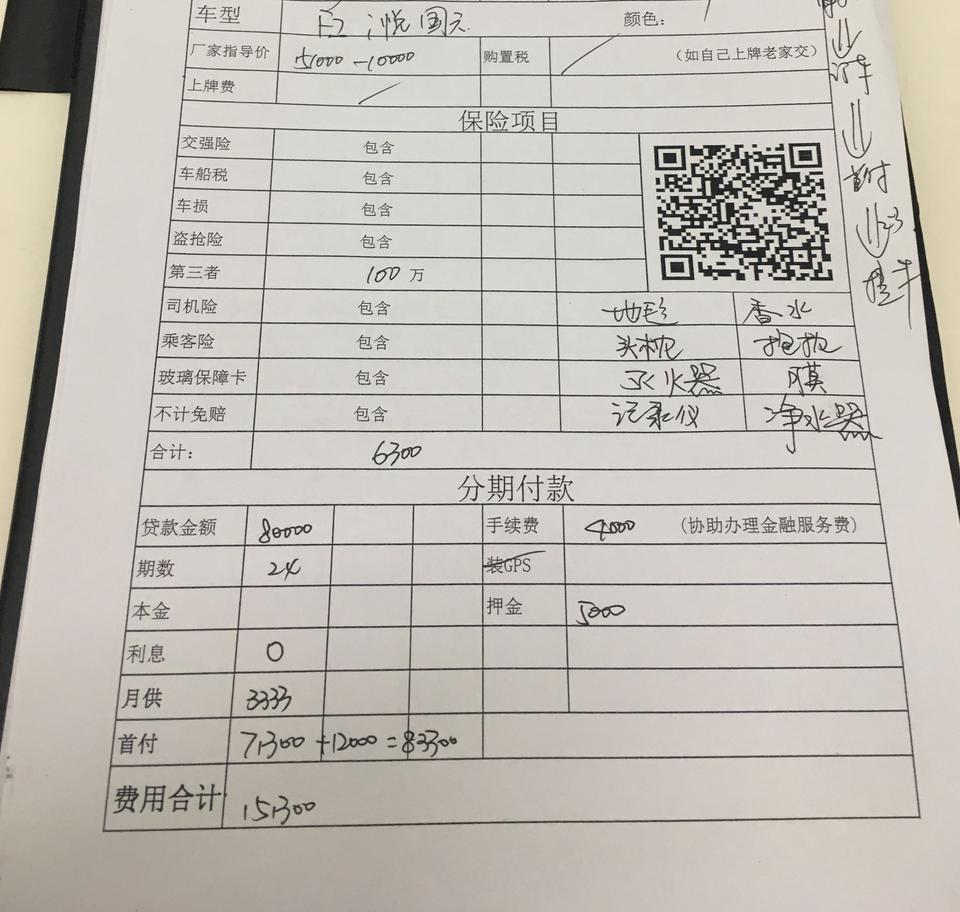 车型 悦 国六 颜色：
厂家指导价 151000-10000 购置税 （如自己上牌老家交）
上牌费
订车
首付
提车
保险项目
交强险 包含
车船税 包含
车损 包含
盗抢险 包含
第三者 100万
司机险 包含 地毯 香水
乘客险 包含 头枕 抱枕
玻璃保障卡 包含 灭火器 膜
不计免赔 包含 记录仪 净水器
合计： 6300
分期付款
贷款金额 80000 手续费 4000 （协助办理金融服务费）
期数 24 装GPS
本金 押金 5000
利息 0
月供 3333
首付 71300+12000=83300
费用合计 151300